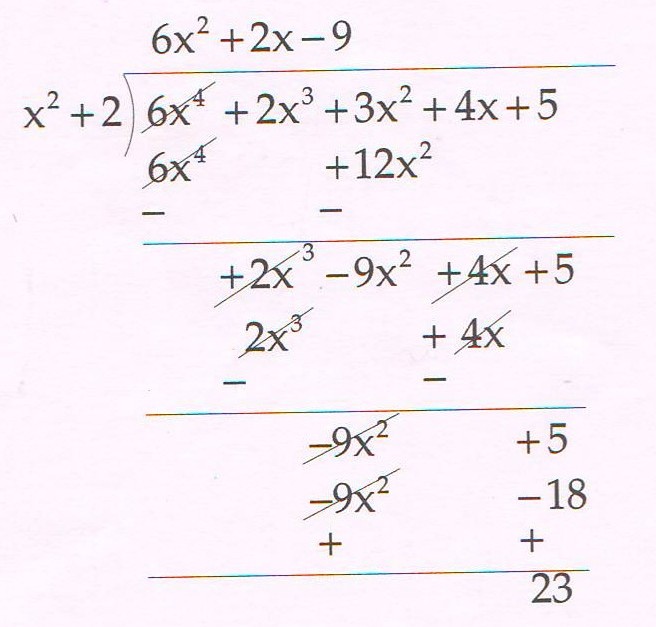 6x² +2x−9
x² +2 ) 6x⁴ +2x³ +3x² +4x+5
6x⁴ +12x²
− −
+2x³ −9x² +4x +5
2x³ + 4x
− −
−9x² +5
−9x² −18
+ +
23